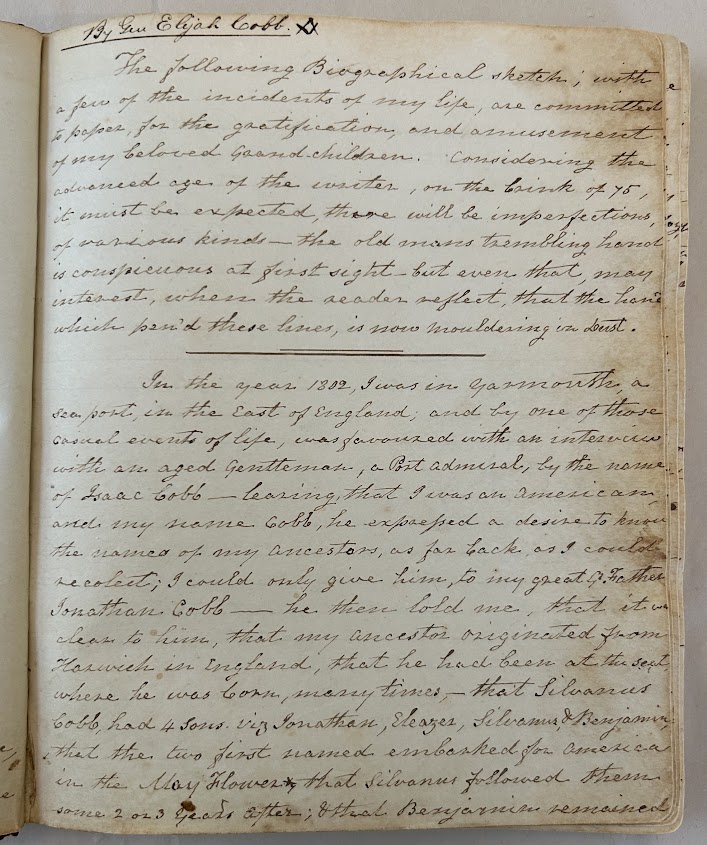 By Gen Elijah Cobb.
The following Biographical sketch, with
a few of the incidents of my life, are committed
to paper, for the gratification, and amusement
of my beloved Grand-children. Considering the
advanced age of the writer, on the brink of 75,
it must be expected, there will be imperfections,
of various kinds — the old mans trembling hand
is conspicuous at first sight — but even that, may
interest, when the reader reflect, that the hand
which pen'd these lines, is now mouldering in Dust.
In the year 1802, I was in Yarmouth, a
sea port, in the East of England; and by one of those
casual events of life, was favoured with an interview
with an aged Gentleman, a Port Admiral, by the name
of Isaac Cobb — learing, that I was an American,
and my name Cobb, he expressed a desire to know
the names of my Ancestors, as far back, as I could
recolect; I could only give him, to my great Gd Father
Jonathan Cobb — he then told me, that it was
clear to him, that my ancestor originated from
Harwich in England, that he had been at the seat,
where he was born, many times, — that Silvanus
Cobb, had 4 sons. viz Jonathan, Eleazer, Silvanus, & Benjamin,
that the two first named embarked for America
in the May Flower, that Silvanus followed them
some 2 or 3 Years after; & that Benjamin remained